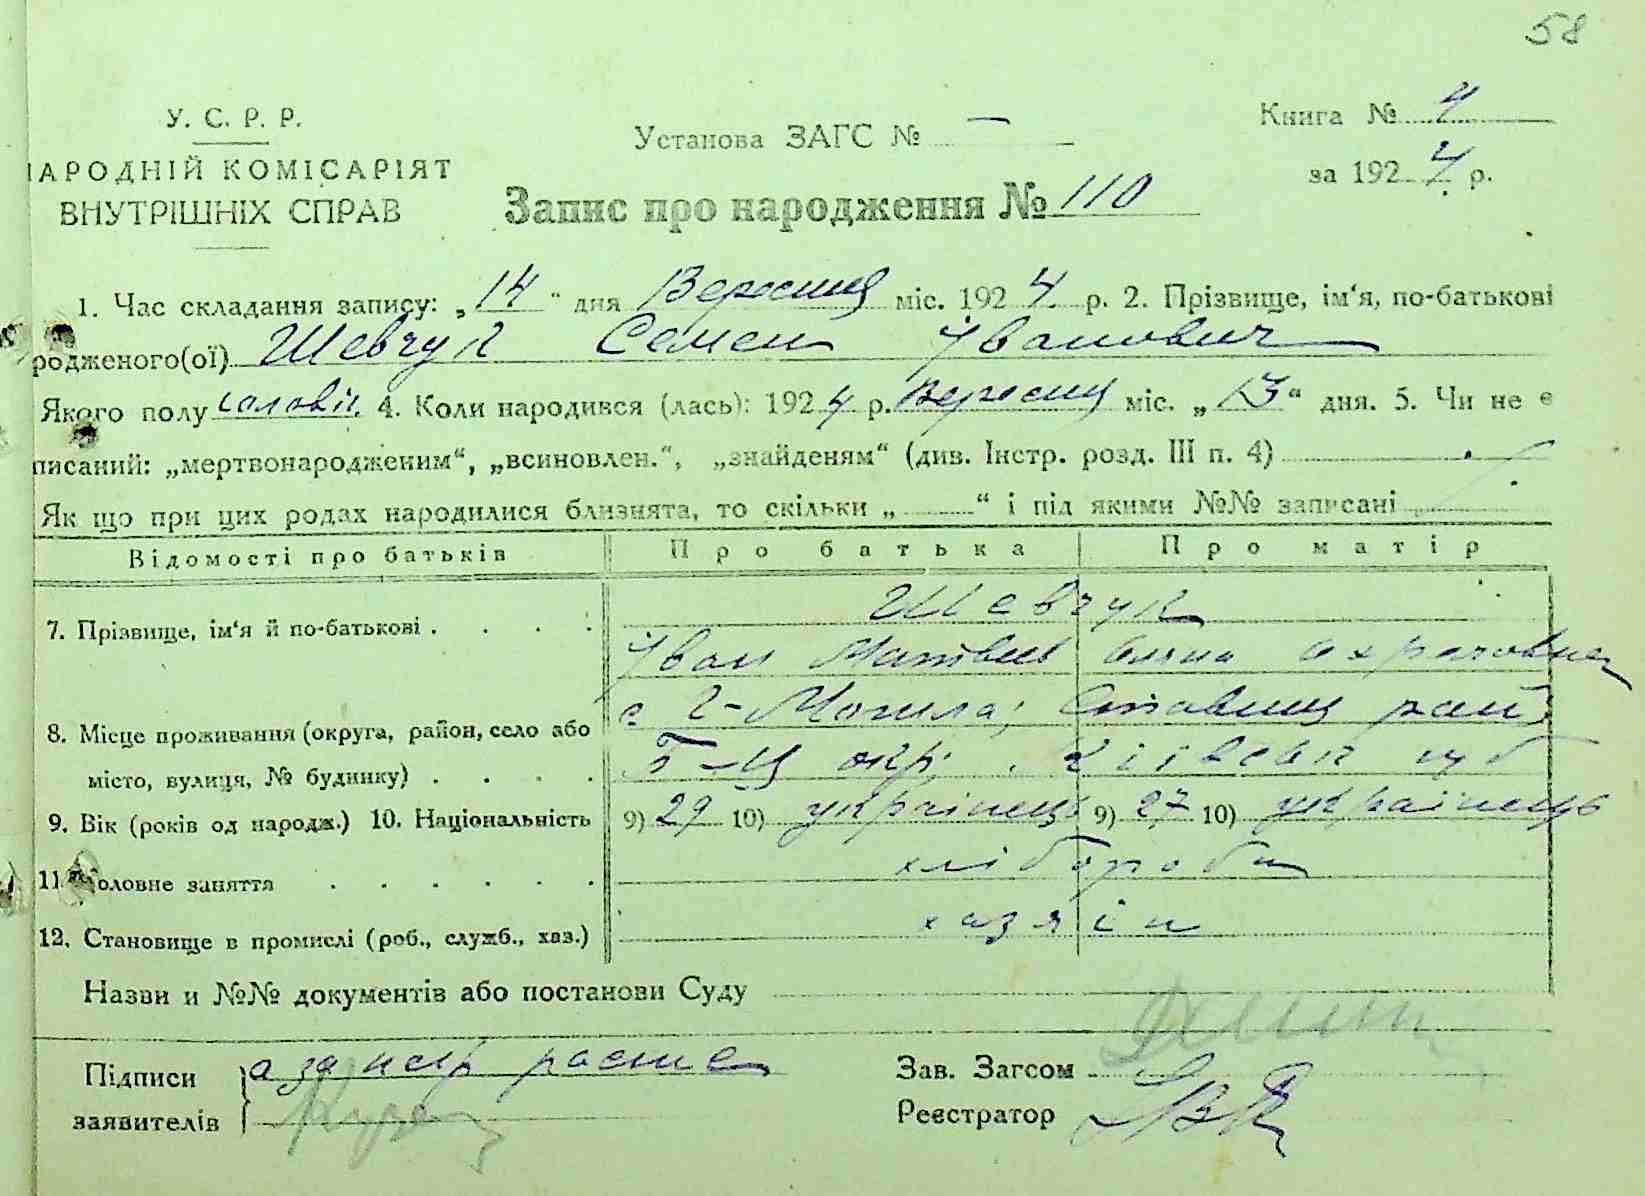 58
У. С. Р. Р.
АРОДНІЙ КОМІСАРІЯТ
ВНУТРІШНІХ СПРАВ
Установа ЗАГС № —
Книга № 4
за 1924 р.
Запис про народження № 110
1. Час складання запису: „14“ дня Вересня міс. 1924 р. 2. Прізвище, ім‘я, по-батькові
родженого(ої) Шевчук Семен Іванович
Якого полу чоловіч. 4. Коли народився (лась): 1924 р. Вересня міс. „13“ дня. 5. Чи не є
писаний: „мертвонародженим“, „всиновлен.“, „знайденям“ (див. Інстр. розд. III п. 4)
Як що при цих родах народилися близнята, то скільки „ “ і під якими №№ записані
Відомості про батьків Про батька Про матір
Шевчук
7. Прізвище, ім‘я й по-батькові . . . . Іван Матвієв
с Г-Могила; Ставищ рай,
8. Місце проживання (округа, район, село або
Б-Ц окр. Київськ губ
місто, вулиця, № будинку) . . . .
9. Вік (років од народж.) 10. Національність 9) 29 10) українець 9) 27 10) українець
хлібороби
11 оловне заняття . . . . . .
12. Становище в промислі (роб., служб., хаз.) хазяїн
Назви и №№ документів або постанови Суду
Підписи
заявителів
Зав. Загсом
Реєстратор